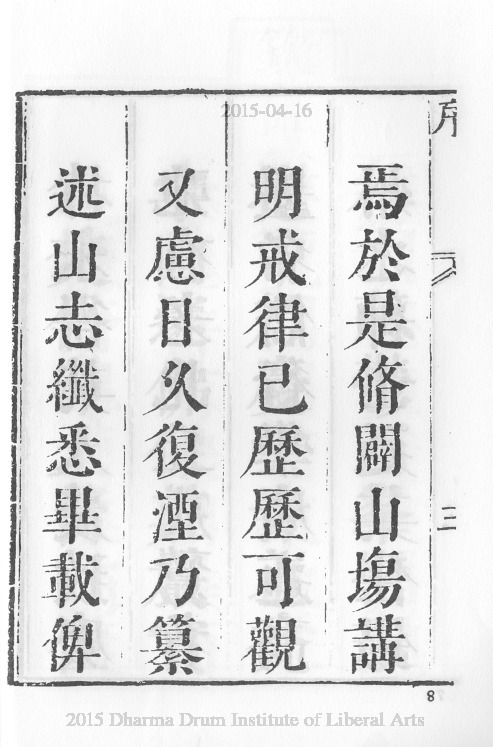 2015-04-16
焉於是脩闢山塲講
明戒律已歷歷可觀
又慮日久復湮乃纂
述山志纖悉畢載俾
三
8
2015 Dharma Drum Institute of Liberal Arts